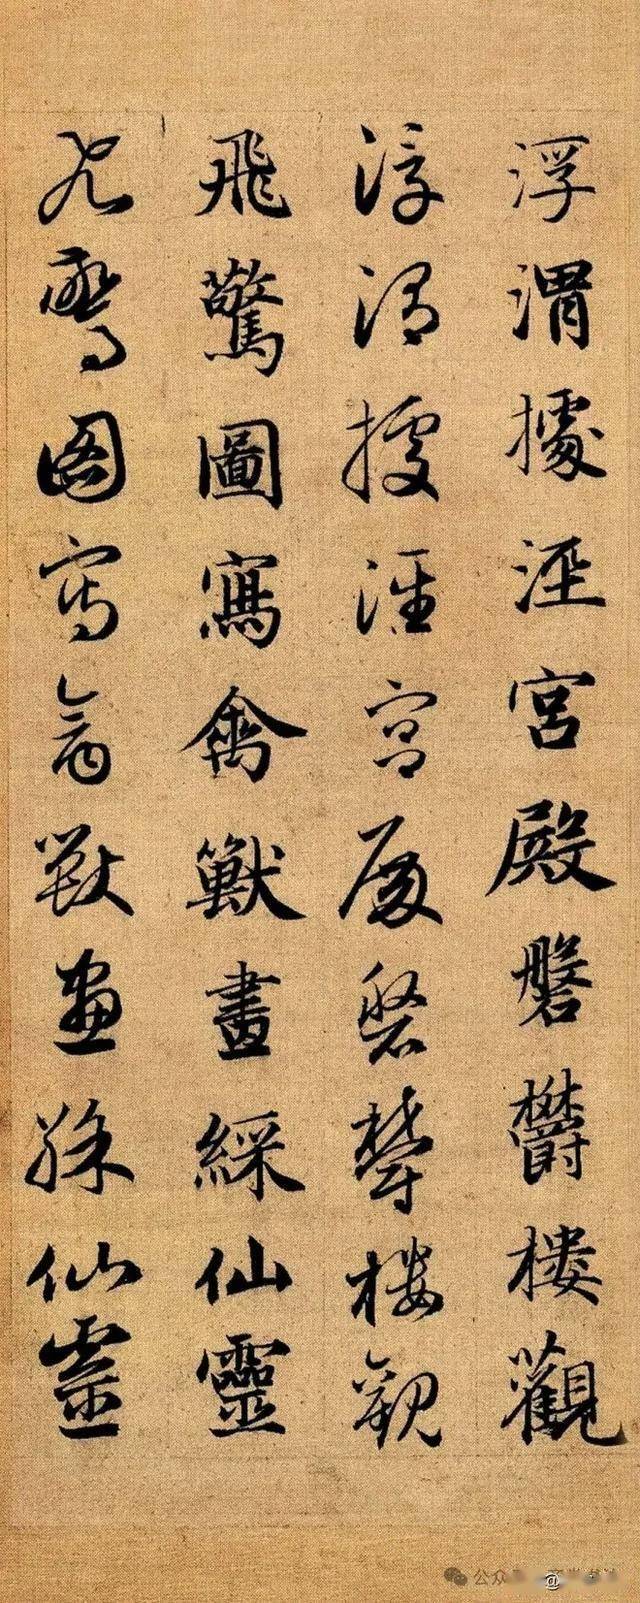 浮渭據涇宮殿磐欝樓觀
浮渭據涇宮殿磐欝樓觀
飛驚圖寫禽獸畫綵仙靈
飛驚圖寫禽獸畫綵仙靈
公众